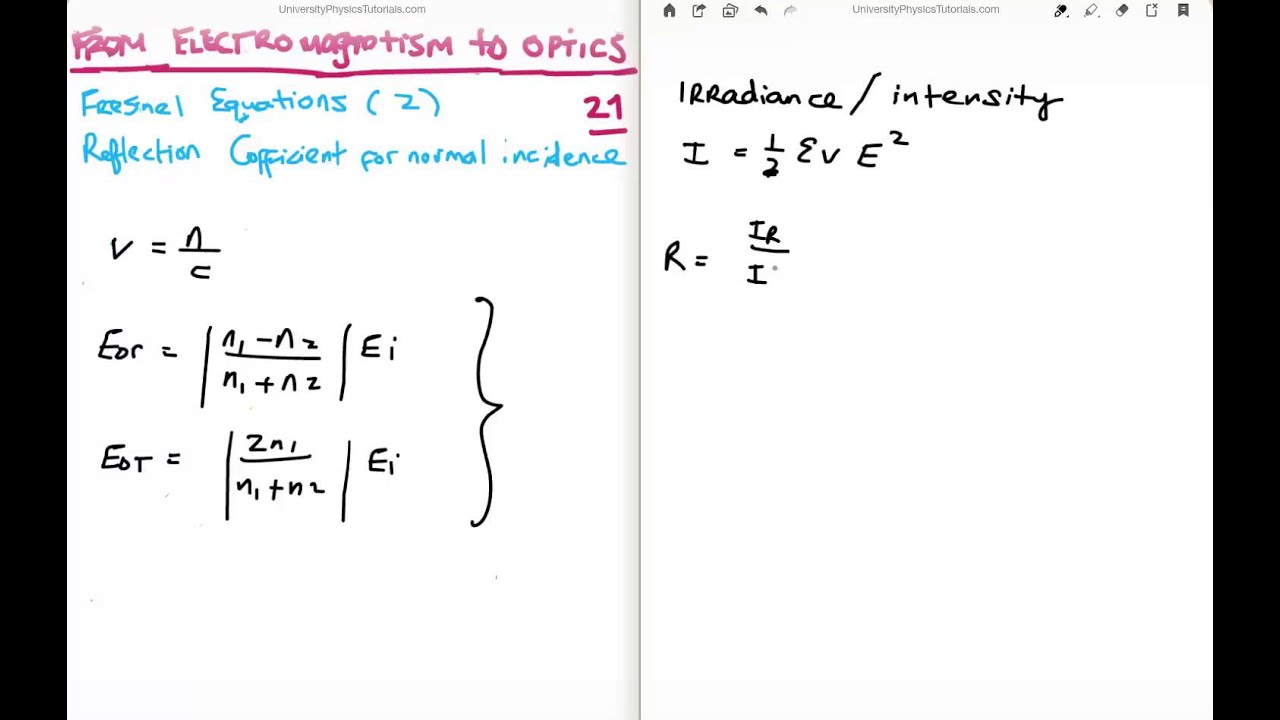 UniversityPhysicsTutorials.com
FROM ELECTROmagnotism to OPTICS
Fresnel Equations (2)
21
Reflection Cofficient for normal incidence
V = n / c
EOr = | n1 - n2 / n1 + n2 | Ei
EOT = | 2n1 / n1 + n2 | Ei
UniversityPhysicsTutorials.com
IRRadiance / intensity
I = 1/2 ε v E²
R = IR / I